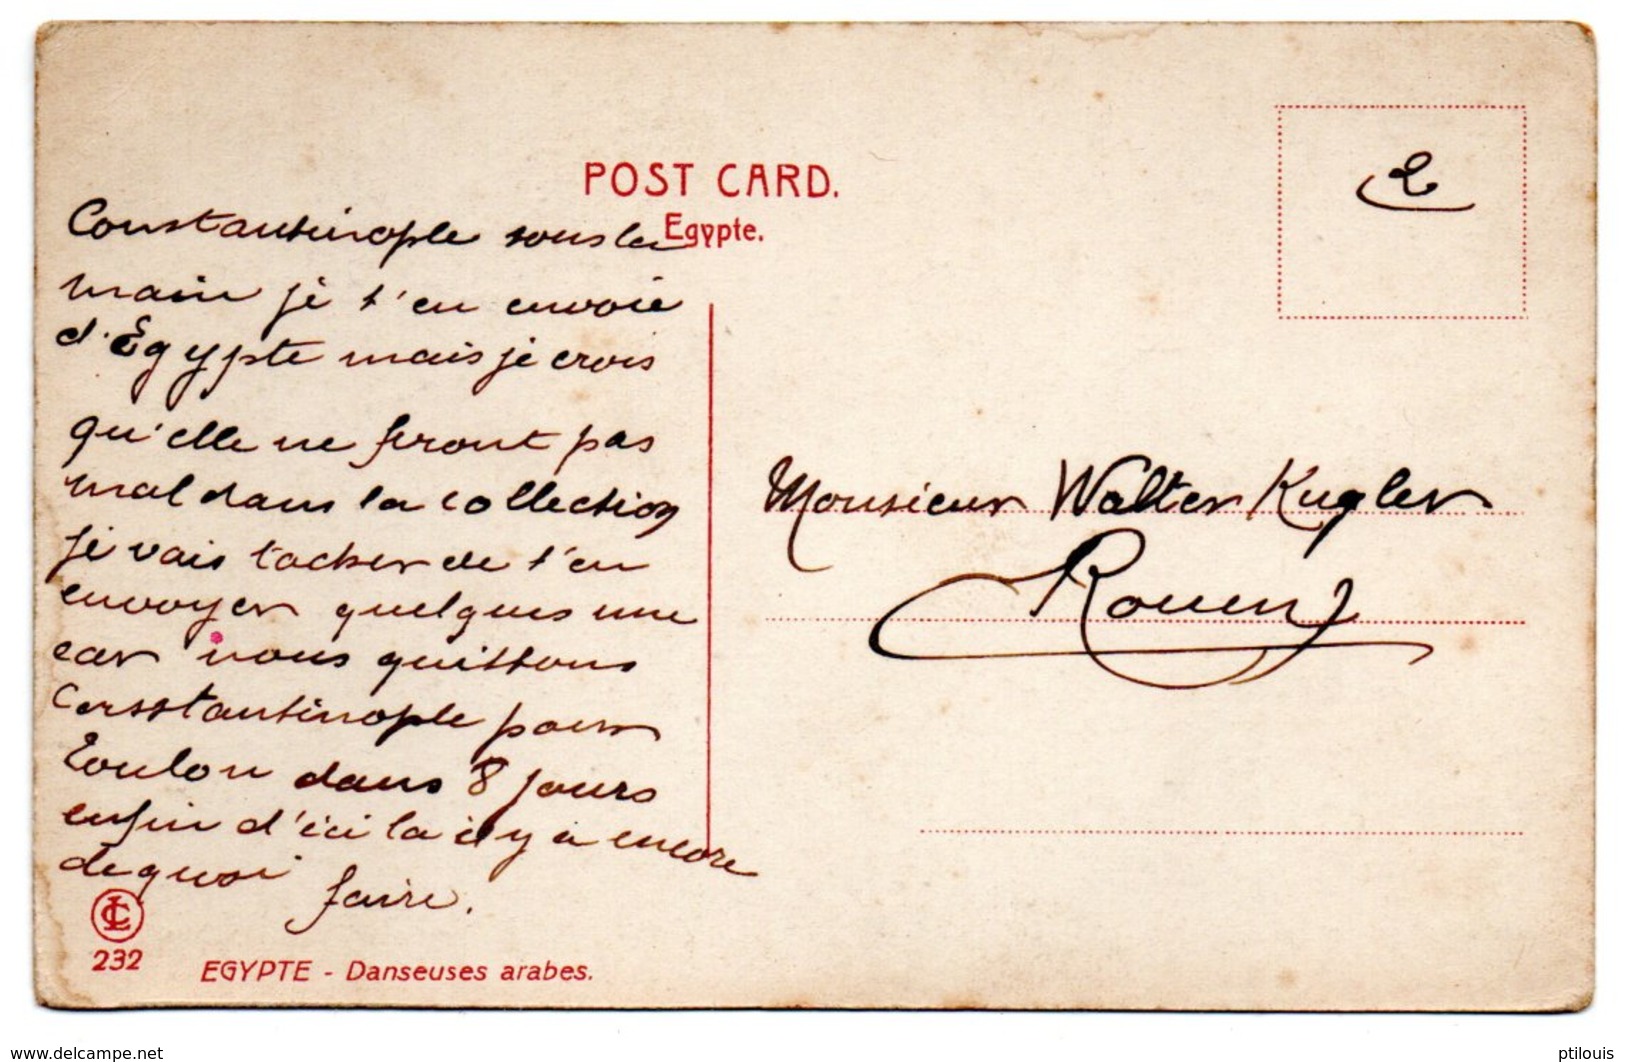 POST CARD.
Egypte.
2
Constantinople sous la
main je t'en envoie
d'Egypte mais je crois
qu'elle ne feront pas
mal dans la collection
je vais tacher de t'en
envoyer quelques une
car nous quittons
Constantinople pour
Toulon dans 8 jours
enfin d'ici la il y a encore
de quoi faire.
Monsieur Walter Kugler
Rouen
LC
232
EGYPTE - Danseuses arabes.
www.delcampe.net
ptilouis